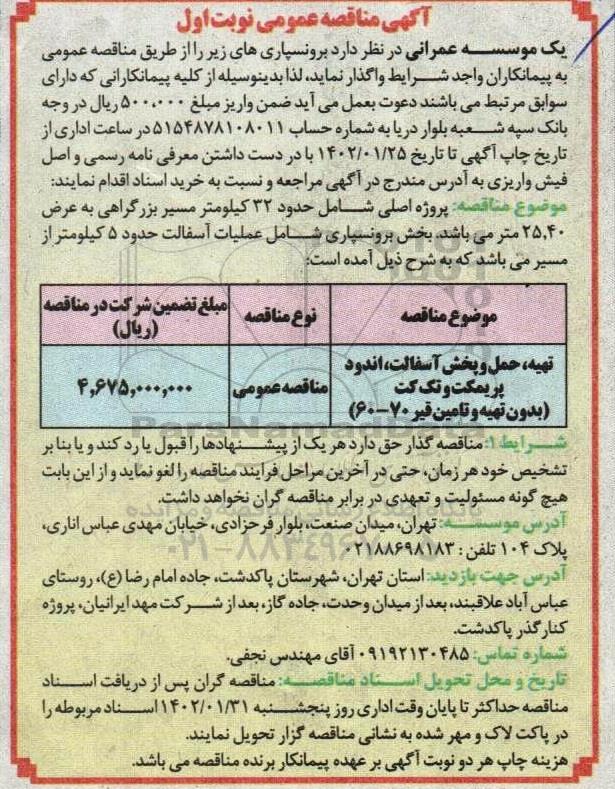 آگهی مناقصه عمومی نوبت اول
یک موسسه عمرانی در نظر دارد برونسپاری های زیر را از طریق مناقصه عمومی
به پیمانکاران واجد شرایط واگذار نماید، لذا بدینوسیله از کلیه پیمانکارانی که دارای
سوابق مرتبط می باشند دعوت بعمل می آید ضمن واریز مبلغ ۵۰۰,۰۰۰ ریال در وجه
بانک سپه شعبه بلوار دریا به شماره حساب ۵۱۵۴۸۷۸۱۰۸۰۱۱ در ساعت اداری از
تاریخ چاپ آگهی تا تاریخ ۱۴۰۲/۰۱/۲۵ با در دست داشتن معرفی نامه رسمی و اصل
فیش واریزی به آدرس مندرج در آگهی مراجعه و نسبت به خرید اسناد اقدام نمایند:
موضوع مناقصه: پروژه اصلی شامل حدود ۳۲ کیلومتر مسیر بزرگراهی به عرض
۲۵,۴۰ متر می باشد. بخش برونسپاری شامل عملیات آسفالت حدود ۵ کیلومتر از
مسیر می باشد که به شرح ذیل آمده است:
موضوع مناقصه نوع مناقصه مبلغ تضمین شرکت در مناقصه
(ریال)
تهیه، حمل و پخش آسفالت، اندود
پریمکت و تک کت مناقصه عمومی ۴,۶۷۵,۰۰۰,۰۰۰
(بدون تهیه و تامین قیر ۷۰-۶۰)
شرایط ۱: مناقصه گذار حق دارد هر یک از پیشنهادها را قبول یا رد کند و یا بنا بر
تشخیص خود هر زمان، حتی در آخرین مراحل فرایند مناقصه را لغو نماید و از این بابت
هیچ گونه مسئولیت و تعهدی در برابر مناقصه گران نخواهد داشت.
آدرس موسسه: تهران، میدان صنعت، بلوار فرحزادی، خیابان مهدی عباس اناری،
پلاک ۱۰۴ تلفن: ۰۲۱۸۸۶۹۸۱۸۳
آدرس جهت بازدید: استان تهران، شهرستان پاکدشت، جاده امام رضا (ع)، روستای
عباس آباد علاقبند، بعد از میدان وحدت، جاده گاز، بعد از شرکت مهد ایرانیان، پروژه
کنارگذر پاکدشت.
شماره تماس: ۰۹۱۹۲۱۳۰۴۸۵ آقای مهندس نجفی.
تاریخ و محل تحویل اسناد مناقصه: مناقصه گران پس از دریافت اسناد
مناقصه حداکثر تا پایان وقت اداری روز پنجشنبه ۱۴۰۲/۰۱/۳۱ اسناد مربوطه را
در پاکت لاک و مهر شده به نشانی مناقصه گزار تحویل نمایند.
هزینه چاپ هر دو نوبت آگهی بر عهده پیمانکار برنده مناقصه می باشد.
ParsNamadData
۰۲۱-۸۸۳۴۹۶۷۰